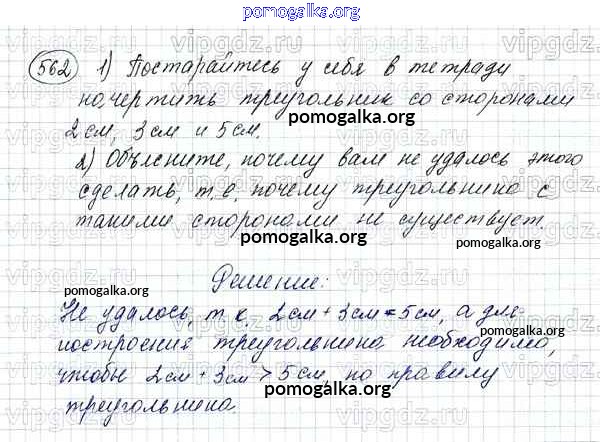 pomogalka.org
562 1) Постарайтесь у себя в тетради
начертить треугольник со сторонами
pomogalka.org
2 см, 3 см и 5 см.
2) Объясните, почему вам не удалось этого
сделать, т.е. почему треугольника с
такими сторонами не существует.
pomogalka.org
Решение:
pomogalka.org
Не удалось, т.к. 2см + 3см = 5см, а для
построения треугольника необходимо,
чтобы 2см + 3см > 5см, по правилу
pomogalka.org
треугольника.